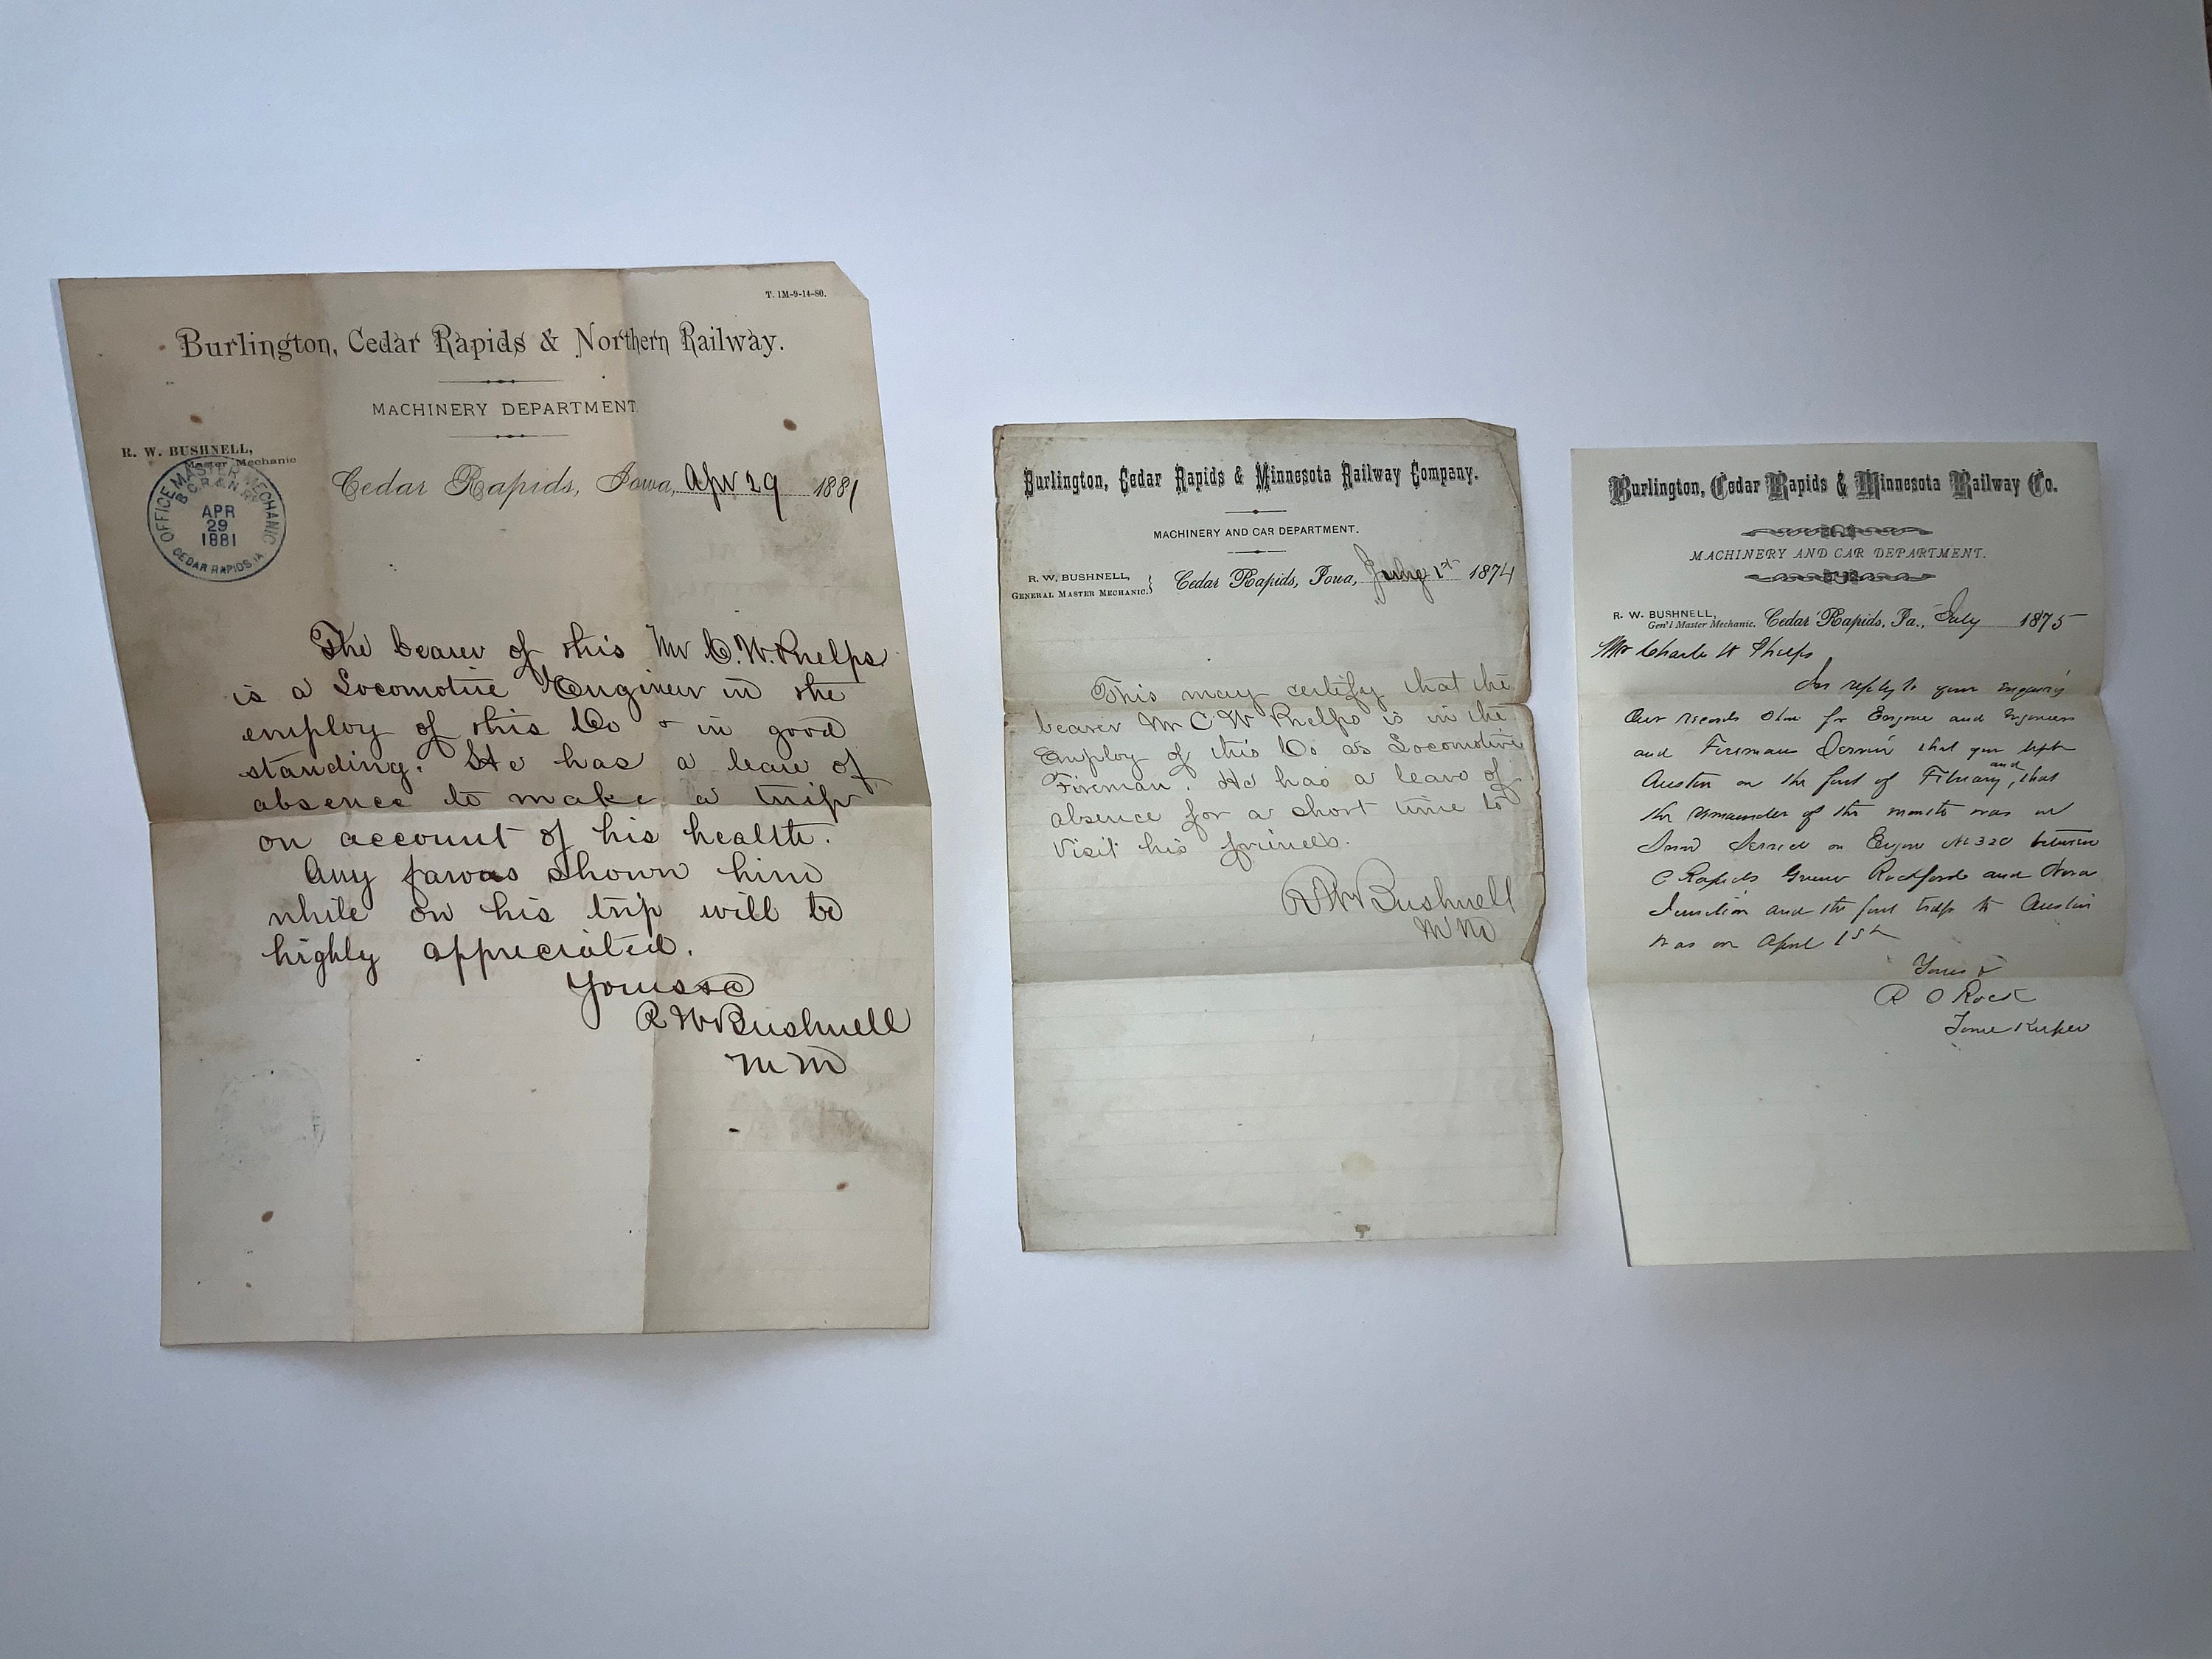 T. 1M-9-14-80.
Burlington, Cedar Rapids & Northern Railway.
MACHINERY DEPARTMENT
R. W. BUSHNELL,
Master Mechanic
Cedar Rapids, Iowa, Apr 29 1881
OFFICE MASTER MECHANIC
B. C. R. & N. Ry.
APR
29
1881
CEDAR RAPIDS IA.
The bearer of this Mr C. W. Phelps
is a Locomotive Engineer in the
employ of this Co & in good
standing. He has a leave of
absence to make a trip
on account of his health.
Any favors shown him
while on his trip will be
highly appreciated.
Yours
R W Bushnell
M M
Burlington, Cedar Rapids & Minnesota Railway Company.
MACHINERY AND CAR DEPARTMENT.
R. W. BUSHNELL,
GENERAL MASTER MECHANIC.
Cedar Rapids, Iowa, 1st 1874
This may certify that the
bearer Mr C W Phelps is in the
Employ of this Co as Locomotive
Fireman. He has a leave of
absence for a short time to
Visit his friends.
R W Bushnell
M M
Burlington, Cedar Rapids & Minnesota Railway Co.
MACHINERY AND CAR DEPARTMENT.
R. W. BUSHNELL,
Gen'l Master Mechanic.
Cedar Rapids, Ia., July 1875
Mr Charls W Phelps
In reply to your
Our records for Engine and Engineers
and Fireman that you left
Austin on the first of February, and that
the remainder of the month was on
Service on Engine No 320 between
C Rapids Greene Rockford and Nora
Junction and the first trip to Austin
was on April 1st
Yours
R O
Time Keeper